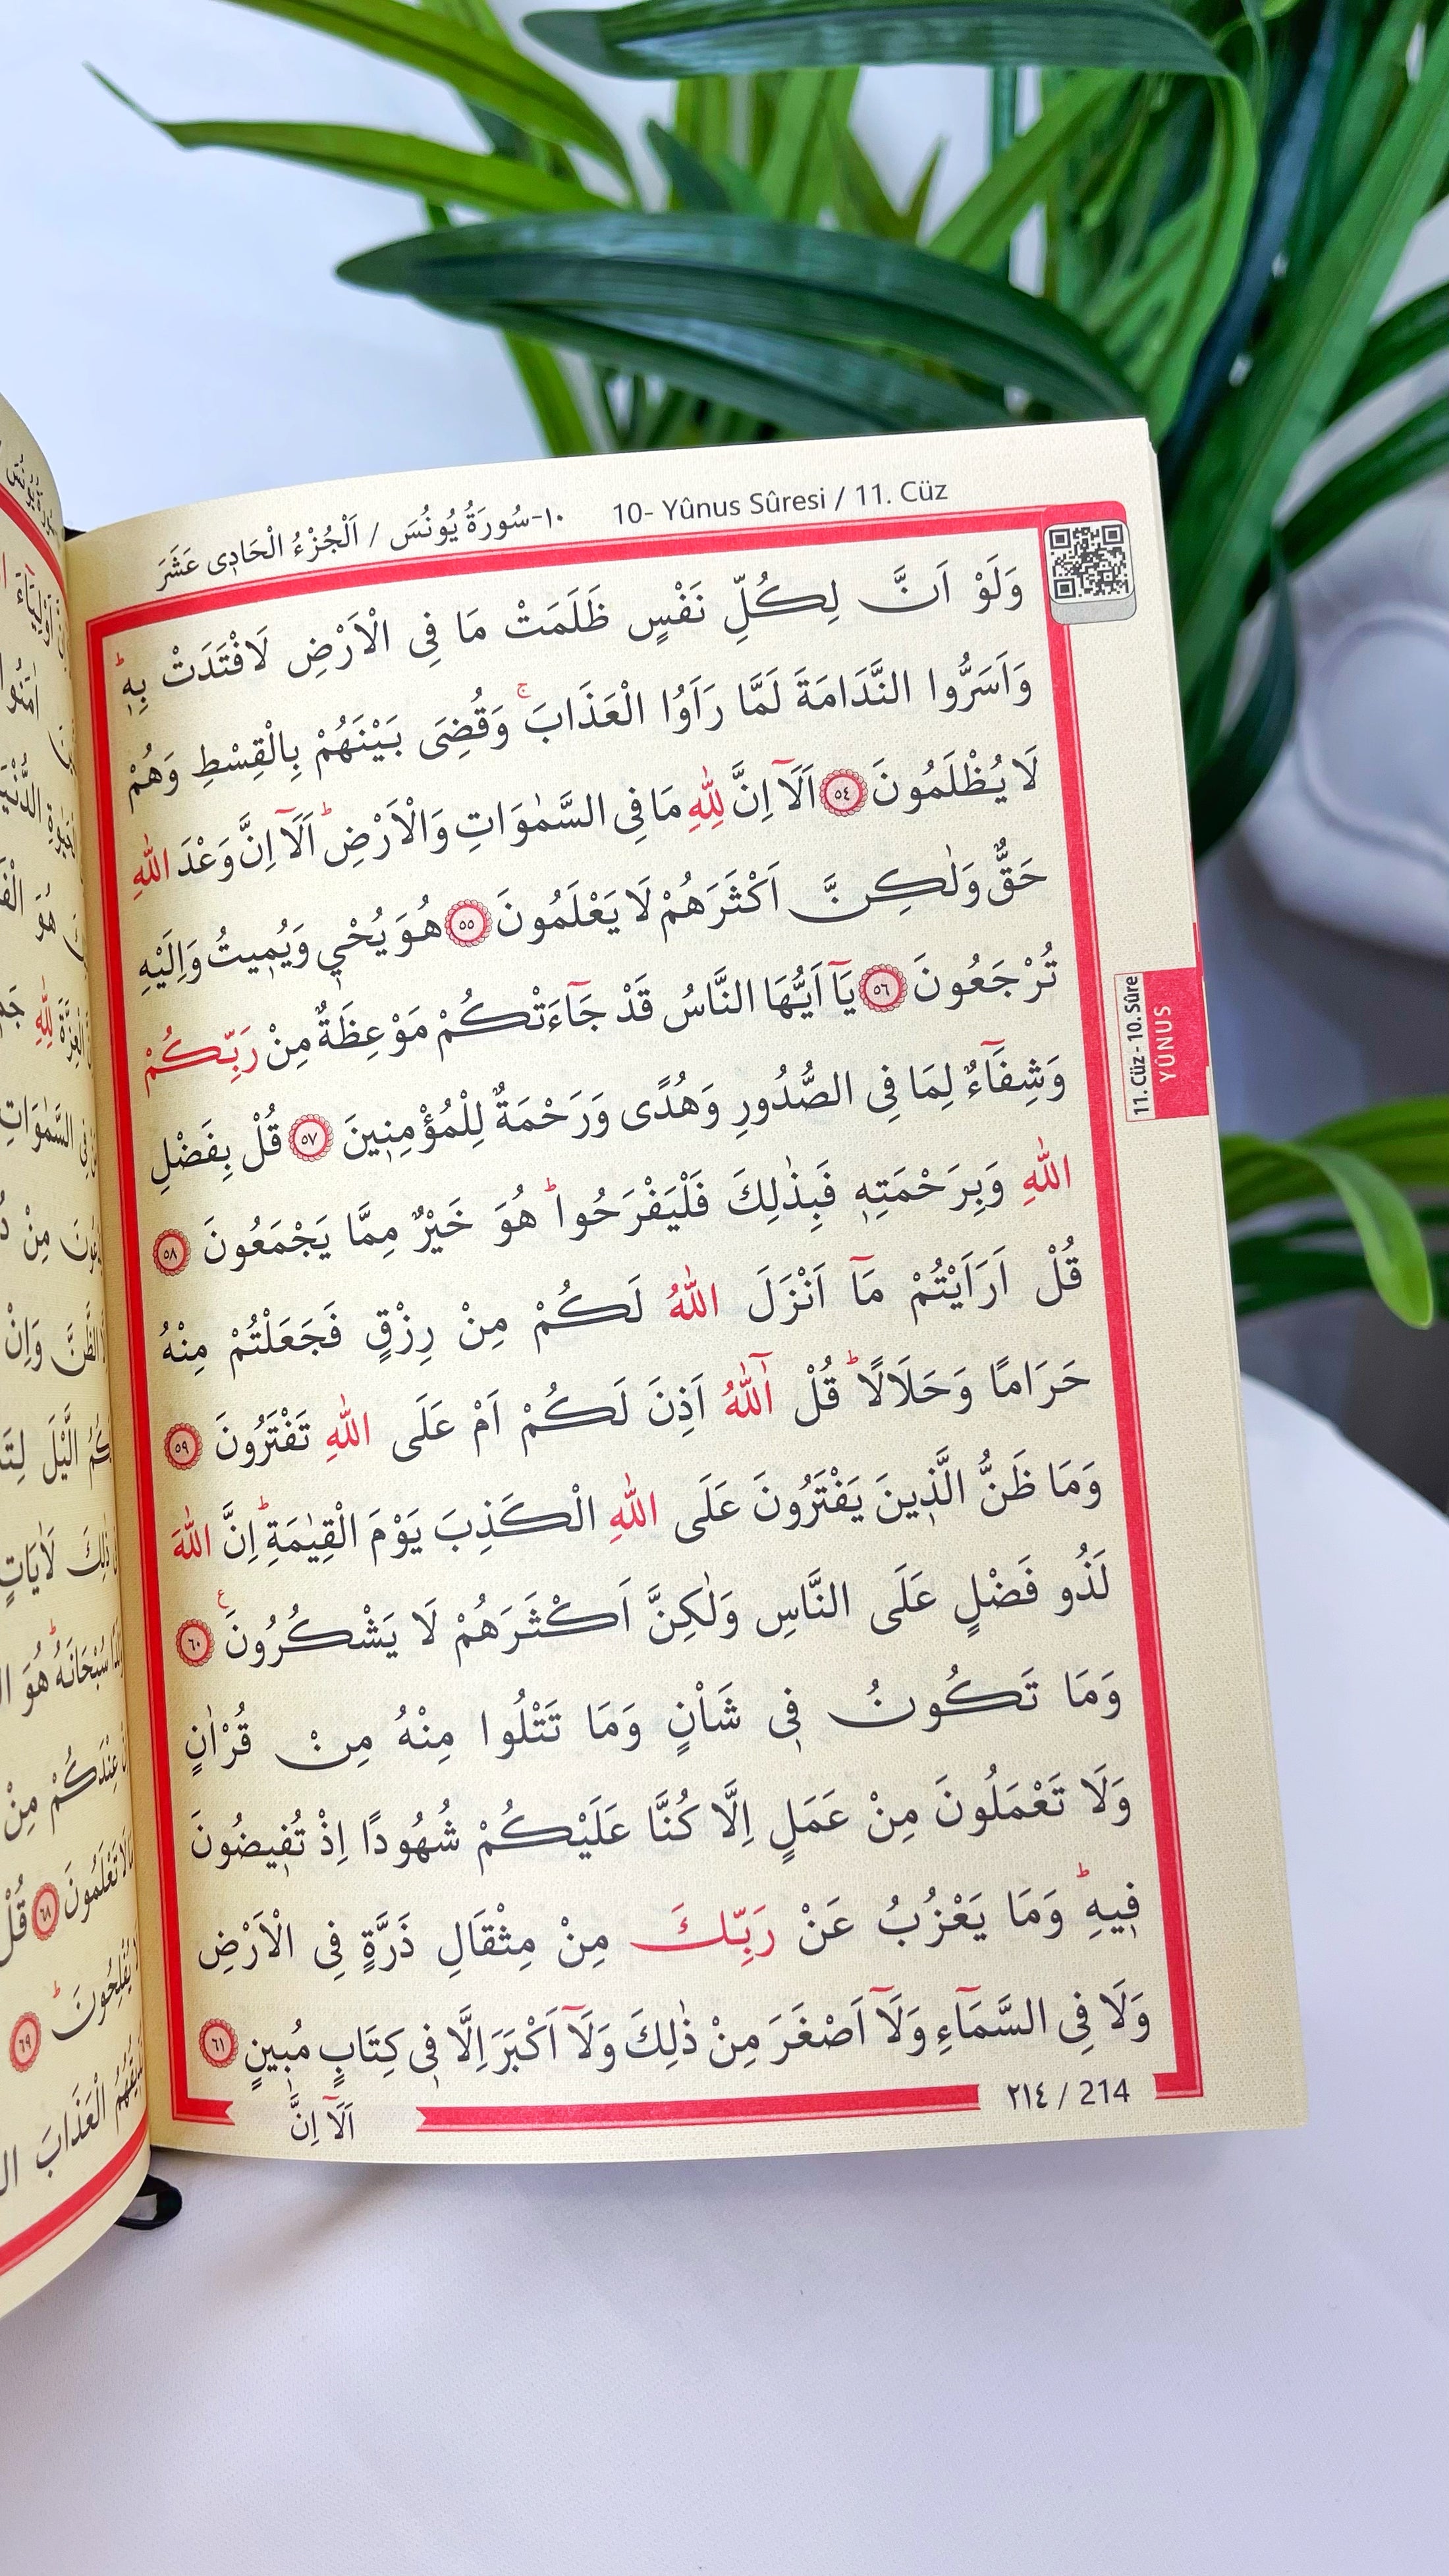 ١٠-سُورَةُ يُونُسَ / اَلْجُزْءُ الْحَادِى عَشَرَ 10- Yûnus Sûresi / 11. Cüz
وَلَوْ اَنَّ لِكُلِّ نَفْسٍ ظَلَمَتْ مَا فِى الْاَرْضِ لَافْتَدَتْ بِهٖؕ
وَاَسَرُّوا النَّدَامَةَ لَمَّا رَاَوُا الْعَذَابَۚ وَقُضِىَ بَيْنَهُمْ بِالْقِسْطِ وَهُمْ
لَا يُظْلَمُونَ ﴿٥٤﴾ اَلَٓا اِنَّ لِلّٰهِ مَا فِى السَّمٰوَاتِ وَالْاَرْضِؕ اَلَٓا اِنَّ وَعْدَ اللّٰهِ
حَقٌّ وَلٰكِنَّ اَكْثَرَهُمْ لَا يَعْلَمُونَ ﴿٥٥﴾ هُوَ يُحْيٖ وَيُمٖيتُ وَاِلَيْهِ
تُرْجَعُونَ ﴿٥٦﴾ يَٓا اَيُّهَا النَّاسُ قَدْ جَٓاءَتْكُمْ مَوْعِظَةٌ مِنْ رَبِّكُمْ
وَشِفَٓاءٌ لِمَا فِى الصُّدُورِ وَهُدًى وَرَحْمَةٌ لِلْمُؤْمِنٖينَ ﴿٥٧﴾ قُلْ بِفَضْلِ
اللّٰهِ وَبِرَحْمَتِهٖ فَبِذٰلِكَ فَلْيَفْرَحُواؕ هُوَ خَيْرٌ مِمَّا يَجْمَعُونَ ﴿٥٨﴾
قُلْ اَرَاَيْتُمْ مَٓا اَنْزَلَ اللّٰهُ لَكُمْ مِنْ رِزْقٍ فَجَعَلْتُمْ مِنْهُ
حَرَامًا وَحَلَالًاؕ قُلْ آٰللّٰهُ اَذِنَ لَكُمْ اَمْ عَلَى اللّٰهِ تَفْتَرُونَ ﴿٥٩﴾
وَمَا ظَنُّ الَّذٖينَ يَفْتَرُونَ عَلَى اللّٰهِ الْكَذِبَ يَوْمَ الْقِيٰمَةِؕ اِنَّ اللّٰهَ
لَذُو فَضْلٍ عَلَى النَّاسِ وَلٰكِنَّ اَكْثَرَهُمْ لَا يَشْكُرُونَ ع ﴿٦٠﴾
وَمَا تَكُونُ فٖى شَاْنٍ وَمَا تَتْلُوا مِنْهُ مِنْ قُرْاٰنٍ
وَلَا تَعْمَلُونَ مِنْ عَمَلٍ اِلَّا كُنَّا عَلَيْكُمْ شُهُودًا اِذْ تُفٖيضُونَ
فٖيهِؕ وَمَا يَعْزُبُ عَنْ رَبِّكَ مِنْ مِثْقَالِ ذَرَّةٍ فِى الْاَرْضِ
وَلَا فِى السَّمَٓاءِ وَلَٓا اَصْغَرَ مِنْ ذٰلِكَ وَلَٓا اَكْبَرَ اِلَّا فٖى كِتَابٍ مُبٖينٍ ﴿٦١﴾
اَلَٓا اِنَّ
٢١٤ / 214
11. Cüz - 10. Sûre
YÛNUS